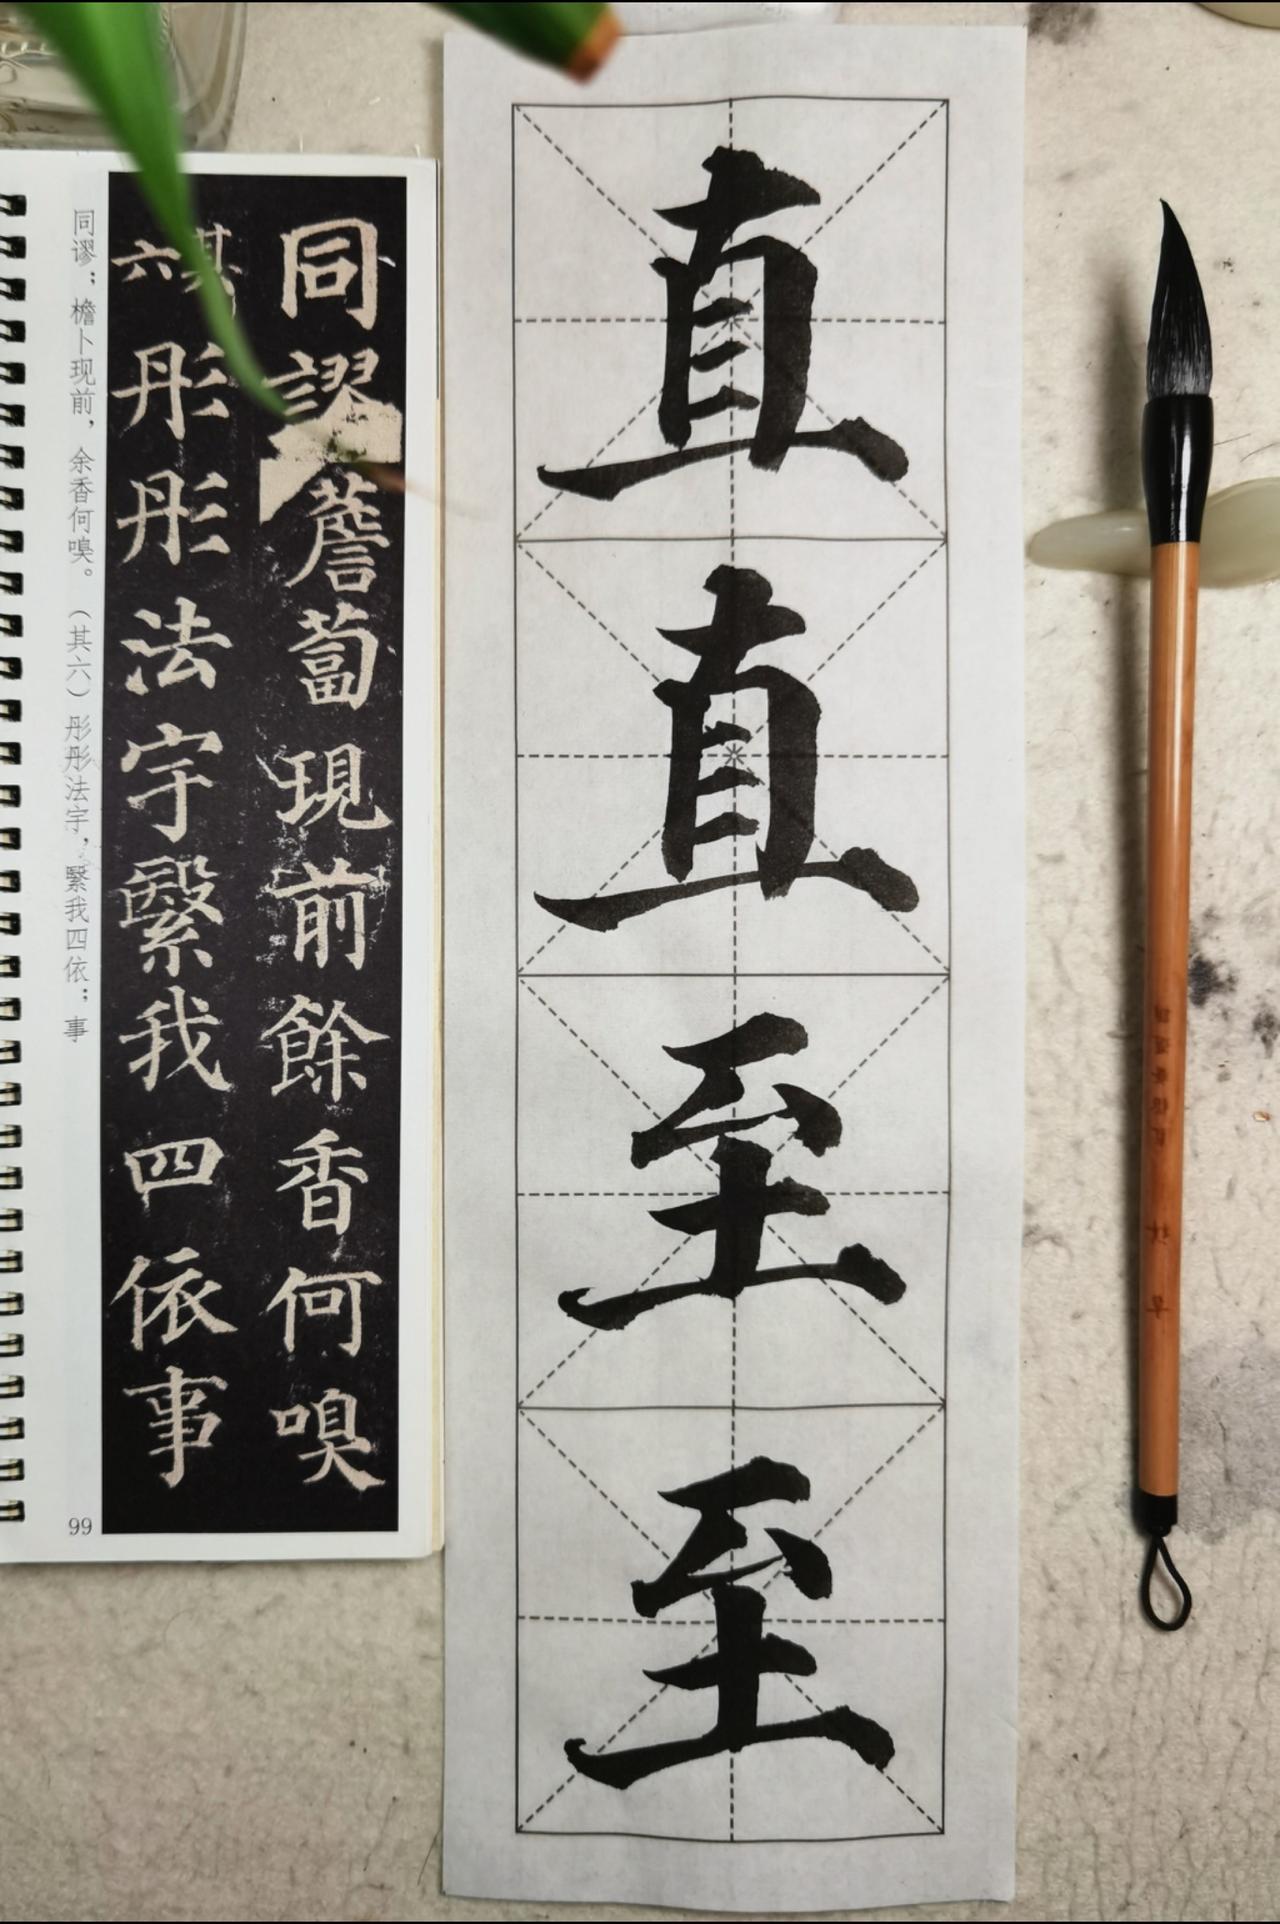 直直至至
同謬薝蔔現前餘香何嗅
其六彤彤法宇繄我四依事
同谬；檐卜现前，余香何嗅。（其六）彤彤法宇，繄我四依；事
99